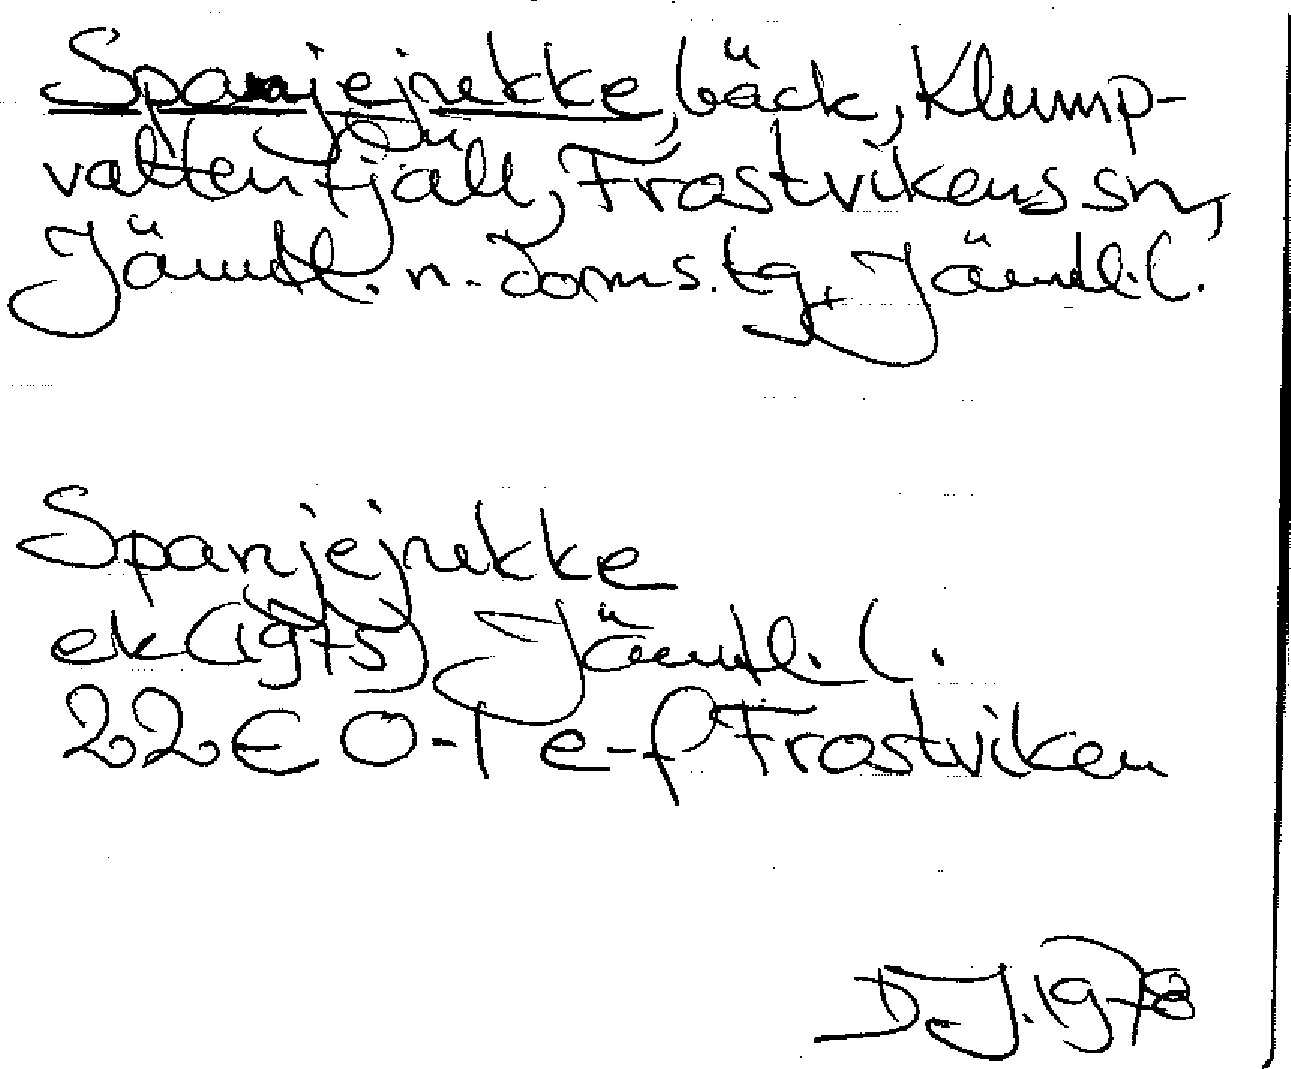 Spanjejukke, bäck, Klump-
vattenfjäll, Frostvikens sn,
Jämtl. n. Doms. tg, Jämtl. l.
Spanjejukke
ek (1975) Jämtl. l.
22E 0-1 e-f Frostviken
DJ. 1978